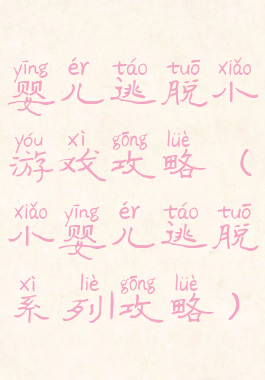 yīng ér táo tuō xiǎo
婴儿逃脱小
yóu xì gōng lüè
游戏攻略（
xiǎo yīng ér táo tuō
小婴儿逃脱
xì liè gōng lüè
系列攻略）